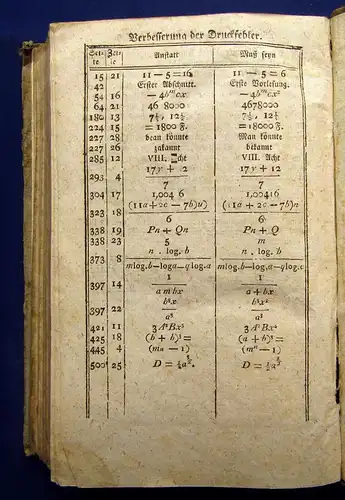 Verbesserung der Druckfehler.
Sei-te | Zei-le | Anstatt | Muß seyn
15 | 21 | 11 — 5 = 16 | 11 — 5 = 6
42 | Erster Abschnitt. | Erste Vorlesung.
54 | 16 | — 4bᵐcx | — 4bᵐcx²
64 | 21 | 46 8000 | 4678000
180 | 13
224 | 15 | = 1800 F. | = 18000 F.
227 | 28 | dean könnte | Man könnte
227 | 26 | zakannt | bekannt
285 | 12 | VIII. Acht | VIII. Acht
293 | 4 | 17y + 2 / 7 | 17y + 12 / 7
304 | 17 | 1,004 6 | 1,00416
323 | 18 | (11a + 2c — 7b)u) / 6 | (11a + 2c — 7b)n / 6
338 | 19 | Pn + Qn | Pn + Q
338 | 23 | 5 | m
373 | 8 | n . log. b / mlog.b—loga—qlog.a | n . log. b / mlog.b—loga—qlog.c
397 | 14 | 1 / a m bx | 1 / a + bx
397 | 22 | b²x / a³ | b²x² / a³
421 | 11 | 3 A²Bx³ | 3 A²Bx²
425 | 18 | (b + b)⁵ = | (a + b)⁵ =
445 | 4 | (mn — 1) | (mⁿ — 1)
500 | 25